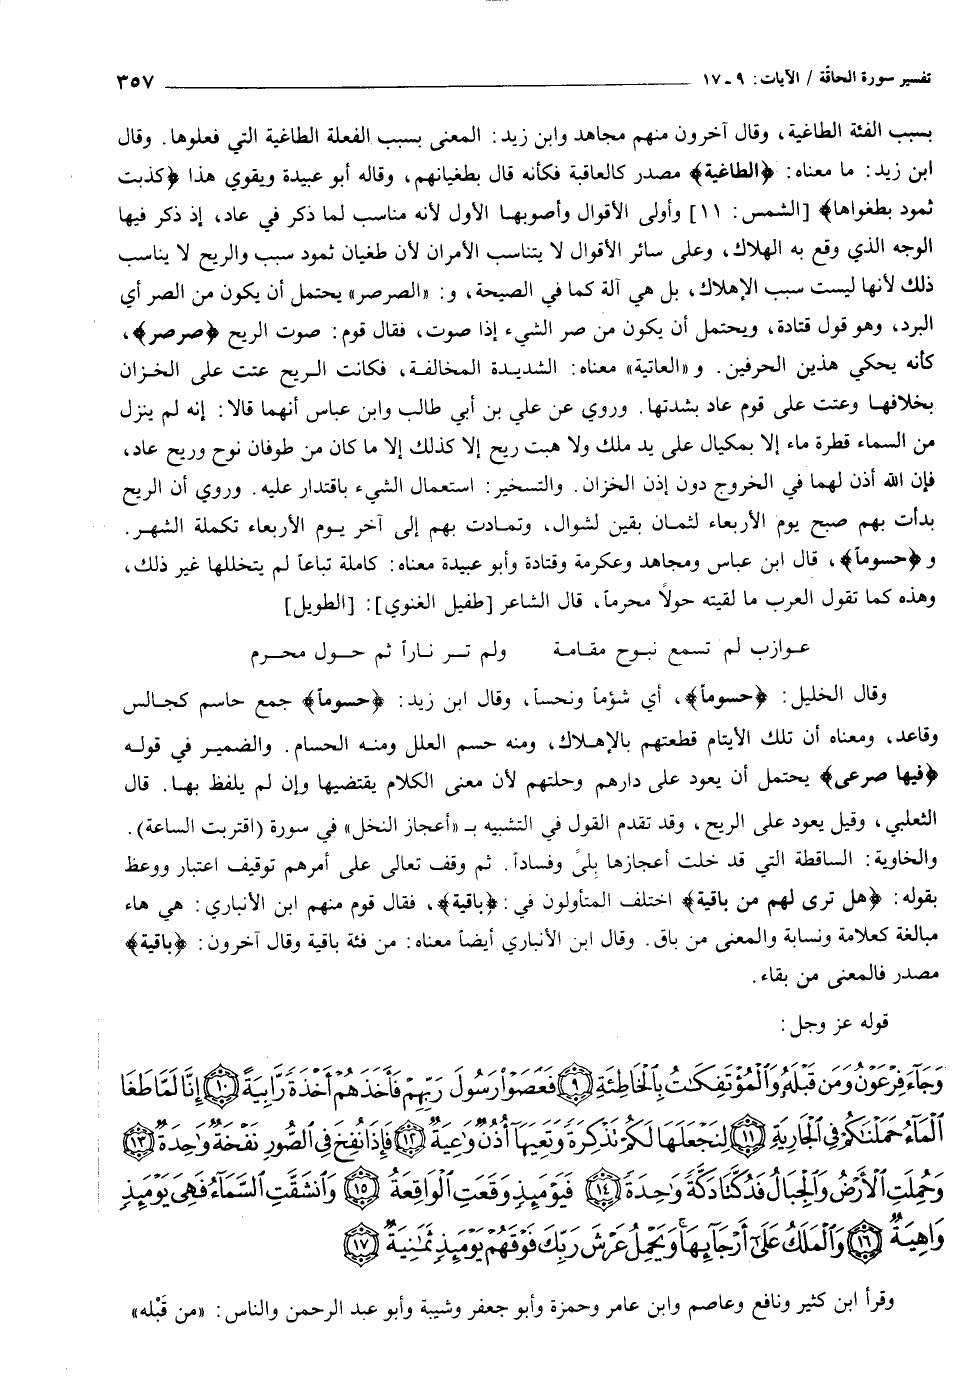 تفسير سورة الحاقّة / الآيات: ٩ ـ ١٧ ٣٥٧
بسبب الفئة الطاغية، وقال آخرون منهم مجاهد وابن زيد: المعنى بسبب الفعلة الطاغية التي فعلوها. وقال
ابن زيد: ما معناه: ﴿الطاغية﴾ مصدر كالعاقبة فكأنه قال بطغيانهم، وقاله أبو عبيدة ويقوي هذا ﴿كذبت
ثمود بطغواها﴾ [الشمس: ١١] وأولى الأقوال وأصوبها الأول لأنه مناسب لما ذكر في عاد، إذ ذكر فيها
الوجه الذي وقع به الهلاك، وعلى سائر الأقوال لا يتناسب الأمران لأن طغيان ثمود سبب والريح لا يناسب
ذلك لأنها ليست سبب الإهلاك، بل هي آلة كما في الصيحة، و: «الصرصر» يحتمل أن يكون من الصر أي
البرد، وهو قول قتادة، ويحتمل أن يكون من صر الشيء إذا صوت، فقال قوم: صوت الريح ﴿صرصر﴾،
كأنه يحكي هذين الحرفين. و «العاتية» معناه: الشديدة المخالفة، فكانت الريح عتت على الخزان
بخلافها وعتت على قوم عاد بشدتها. وروي عن علي بن أبي طالب وابن عباس أنهما قالا: إنه لم ينزل
من السماء قطرة ماء إلا بمكيال على يد ملك ولا هبت ريح إلا كذلك إلا ما كان من طوفان نوح وريح عاد،
فإن الله أذن لهما في الخروج دون إذن الخزان. والتسخير: استعمال الشيء باقتدار عليه. وروي أن الريح
بدأت بهم صبح يوم الأربعاء لثمان بقين لشوال، وتمادت بهم إلى آخر يوم الأربعاء تكملة الشهر.
و﴿حسوماً﴾، قال ابن عباس ومجاهد وعكرمة وقتادة وأبو عبيدة معناه: كاملة تباعاً لم يتخللها غير ذلك،
وهذه كما تقول العرب ما لقيته حولاً محرماً، قال الشاعر [طفيل الغنوي]: [الطويل]
عوازب لم تسمع نبوح مقامة ولم تر ناراً ثم حول محرم
وقال الخليل: ﴿حسوماً﴾، أي شؤماً ونحساً، وقال ابن زيد: ﴿حسوماً﴾ جمع حاسم كجالس
وقاعد، ومعناه أن تلك الأيتام قطعتهم بالإهلاك، ومنه حسم العلل ومنه الحسام. والضمير في قوله
﴿فيها صرعى﴾ يحتمل أن يعود على دارهم وحلتهم لأن معنى الكلام يقتضيها وإن لم يلفظ بها. قال
الثعلبي، وقيل يعود على الريح، وقد تقدم القول في التشبيه بـ «أعجاز النخل» في سورة (اقتربت الساعة).
والخاوية: الساقطة التي قد خلت أعجازها بلىً وفساداً. ثم وقف تعالى على أمرهم توقيف اعتبار ووعظ
بقوله: ﴿هل ترى لهم من باقية﴾ اختلف المتأولون في: ﴿باقية﴾، فقال قوم منهم ابن الأنباري: هي هاء
مبالغة كعلامة ونسابة والمعنى من باق. وقال ابن الأنباري أيضاً معناه: من فئة باقية وقال آخرون: ﴿باقية﴾
مصدر فالمعنى من بقاء.
قوله عز وجل:
وَجَاءَ فِرْعَوْنُ وَمَن قَبْلَهُ وَالْمُؤْتَفِكَاتُ بِالْخَاطِئَةِ ۝٩ فَعَصَوْا رَسُولَ رَبِّهِمْ فَأَخَذَهُمْ أَخْذَةً رَّابِيَةً ۝١٠ إِنَّا لَمَّا طَغَا
الْمَاءُ حَمَلْنَاكُمْ فِي الْجَارِيَةِ ۝١١ لِنَجْعَلَهَا لَكُمْ تَذْكِرَةً وَتَعِيَهَا أُذُنٌ وَاعِيَةٌ ۝١٢ فَإِذَا نُفِخَ فِي الصُّورِ نَفْخَةٌ وَاحِدَةٌ ۝١٣
وَحُمِلَتِ الْأَرْضُ وَالْجِبَالُ فَدُكَّتَا دَكَّةً وَاحِدَةً ۝١٤ فَيَوْمَئِذٍ وَقَعَتِ الْوَاقِعَةُ ۝١٥ وَانشَقَّتِ السَّمَاءُ فَهِيَ يَوْمَئِذٍ
وَاهِيَةٌ ۝١٦ وَالْمَلَكُ عَلَى أَرْجَائِهَا وَيَحْمِلُ عَرْشَ رَبِّكَ فَوْقَهُمْ يَوْمَئِذٍ ثَمَانِيَةٌ ۝١٧
وقرأ ابن كثير ونافع وعاصم وابن عامر وحمزة وأبو جعفر وشيبة وأبو عبد الرحمن والناس: «من قَبْله»